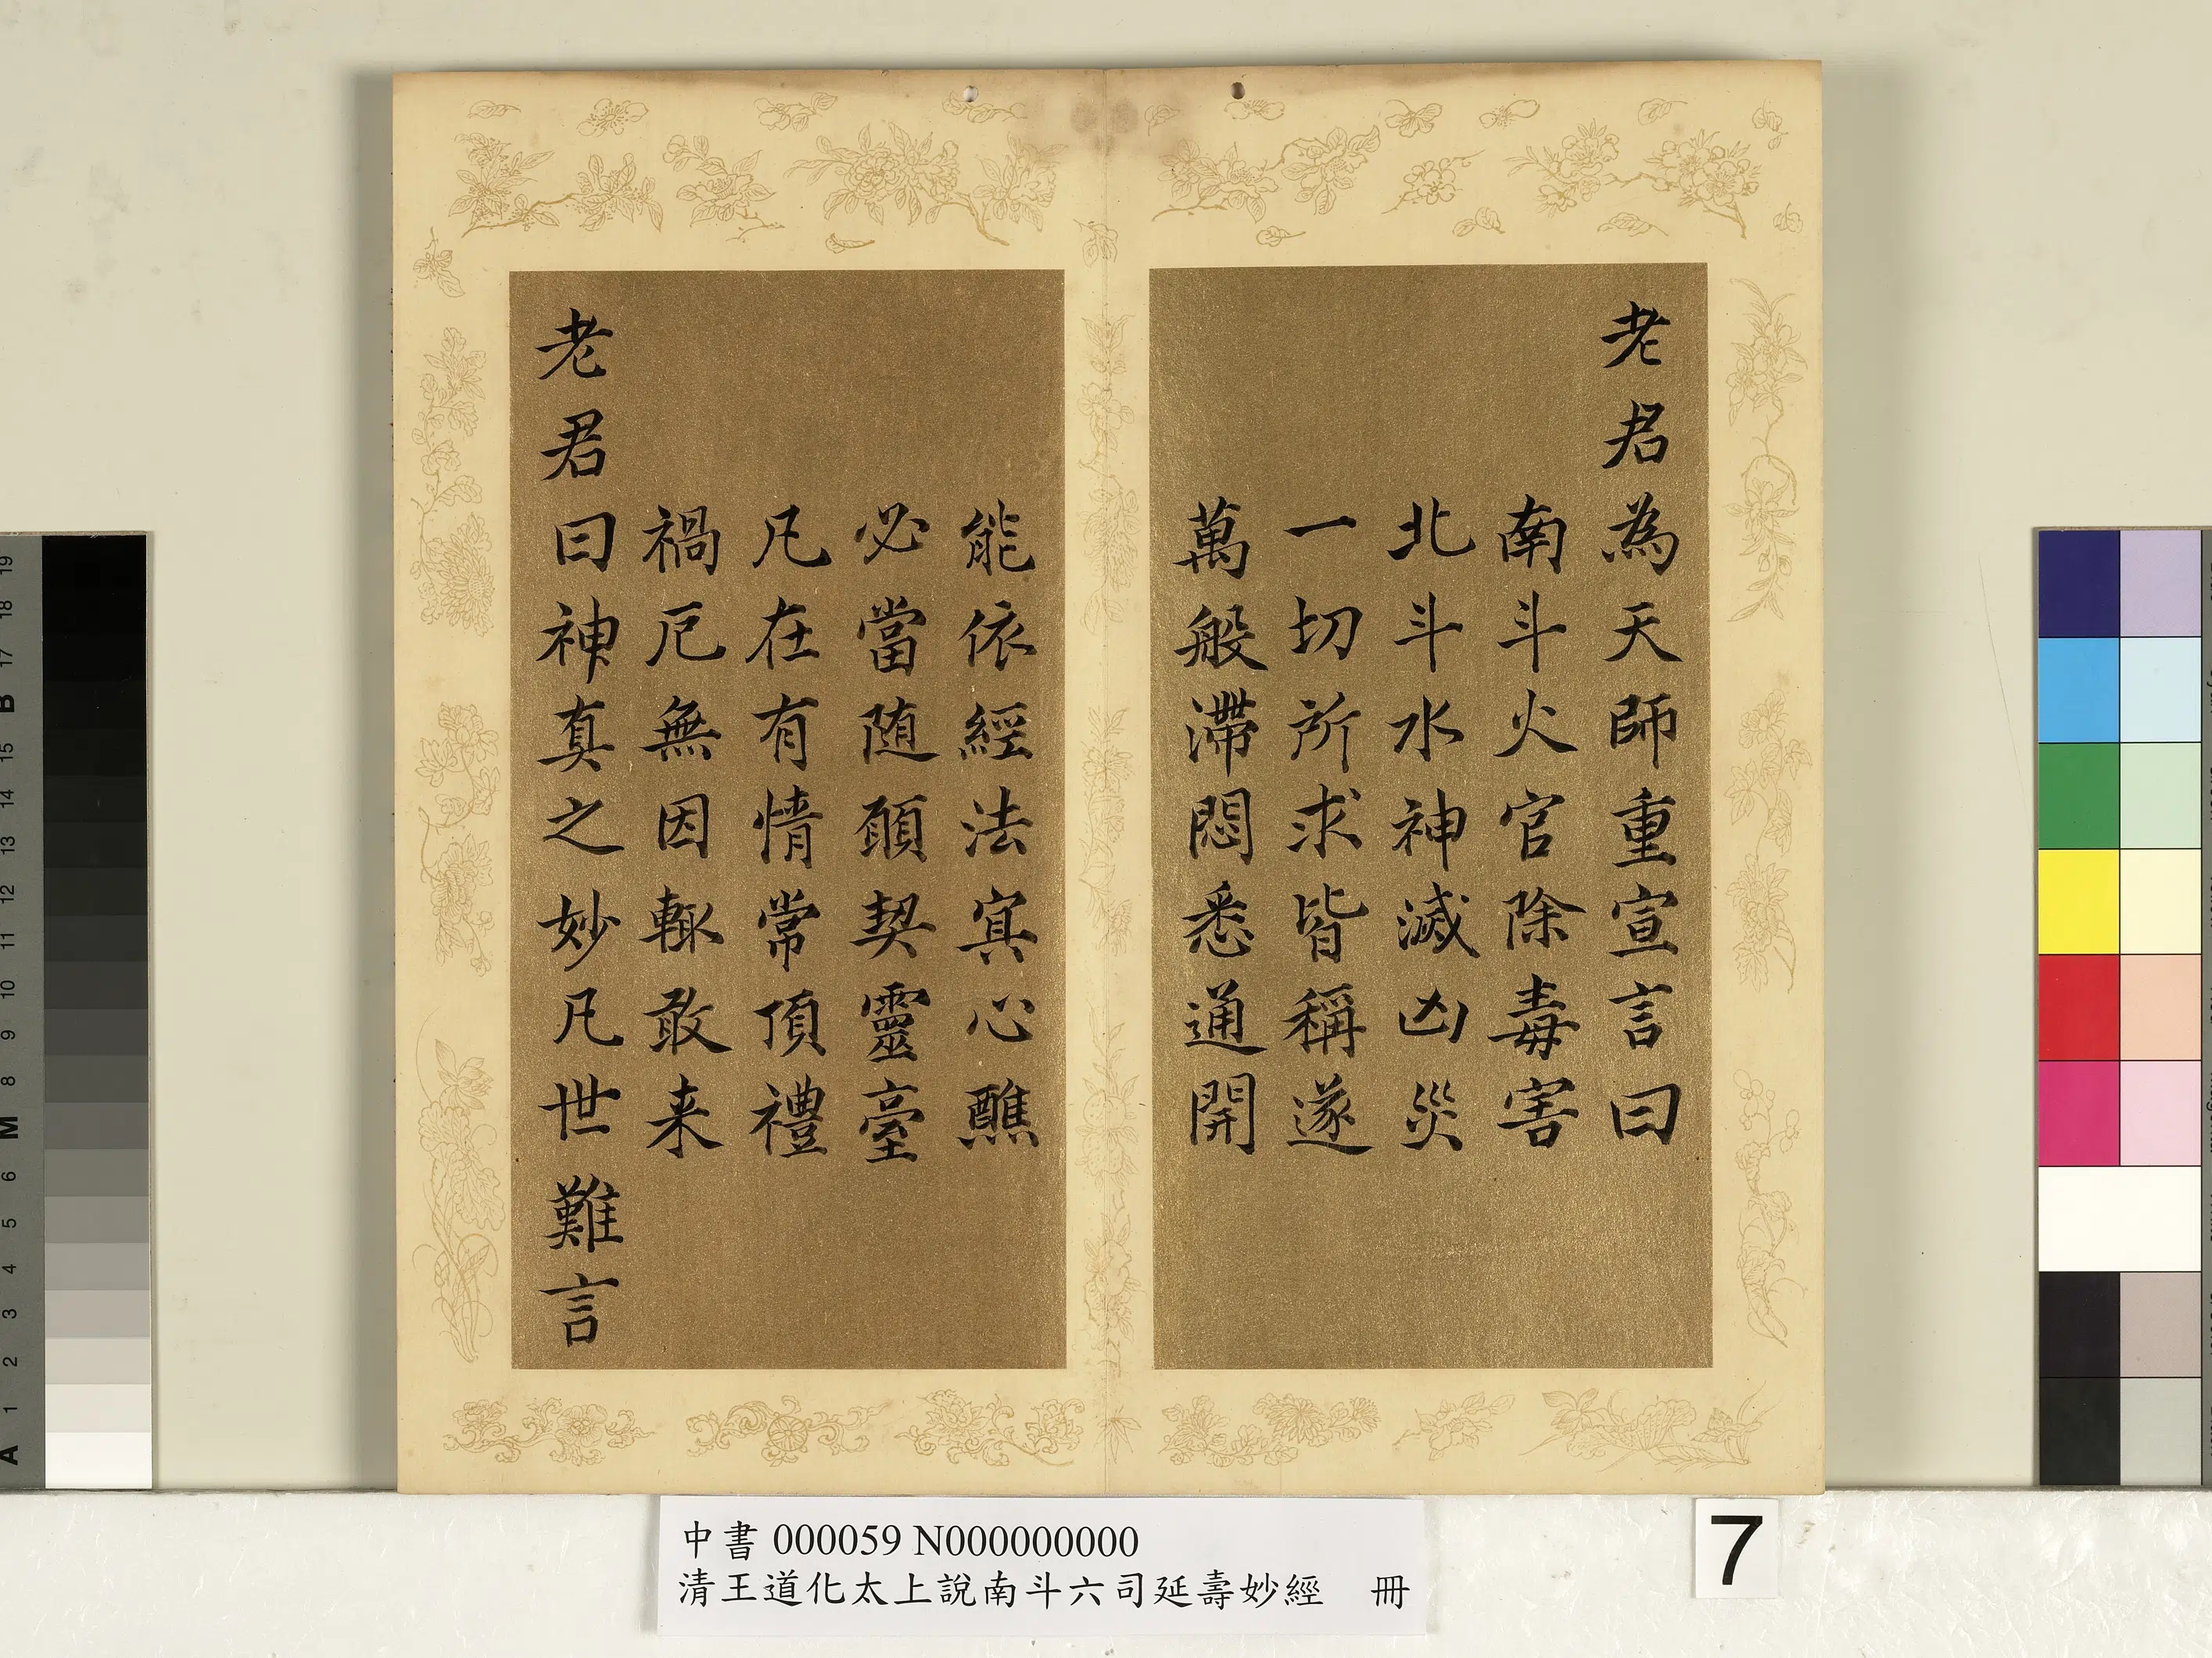 老君為天師重宣言曰
南斗火官除毒害
北斗水神滅凶災
一切所求皆稱遂
萬般滯悶悉通開
能依經法寘心醮
必當随願契靈臺
凡在有情常頂禮
禍厄無因輙敢来
老君曰神真之妙凡世難言
中書 000059 N000000000
清王道化太上說南斗六司延壽妙經 冊
7
A 1 2 3 4 5 6 M 8 9 10 11 12 13 14 15 B 17 18 19